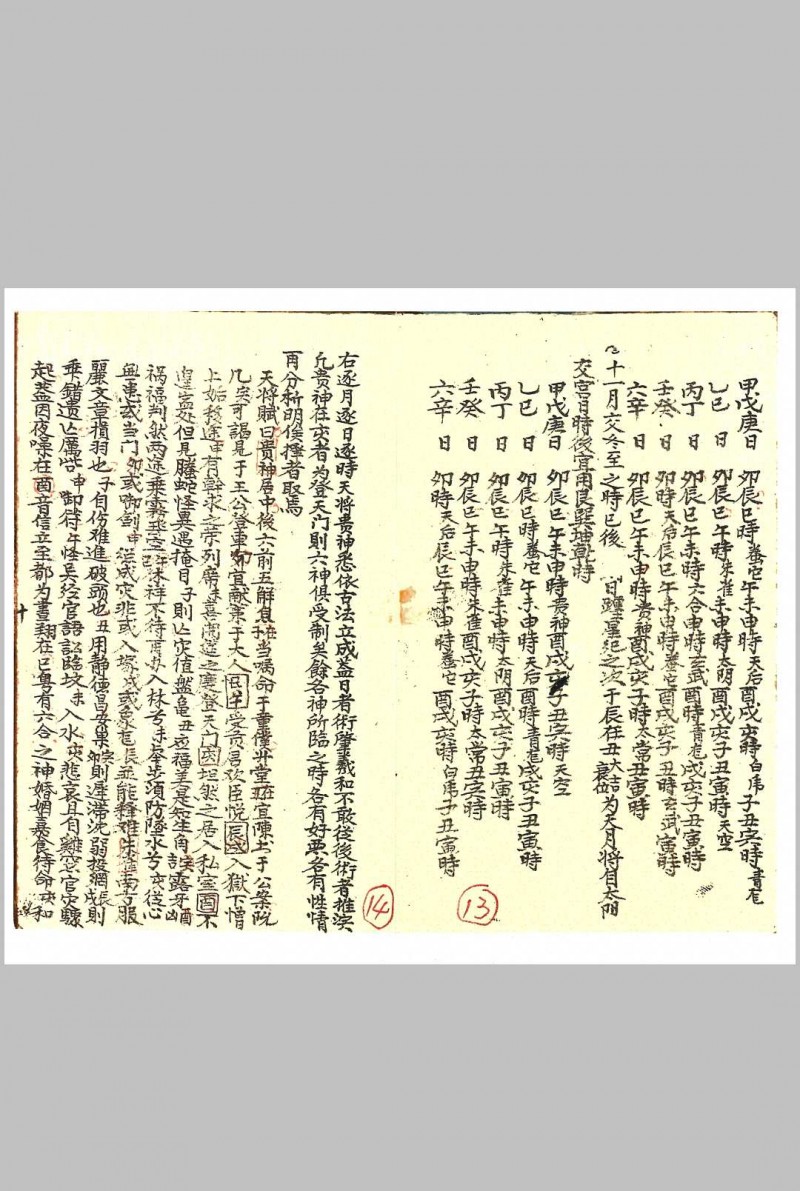 甲戊庚日 卯辰巳時螣蛇午未申時天后酉戌亥時白虎子丑寅時青龙
乙巳日 卯辰巳午時朱雀未申時太阴酉戌亥子丑寅時天空
丙丁日 卯辰巳午未時六合申時玄武酉時青龙戌亥子丑寅時
壬癸日 卯時天后辰巳午未申時螣蛇酉戌亥子丑時玄武寅時
六辛日 卯辰巳午未申時貴神酉戌亥子時太常丑寅時
十一月交冬至之時已後 日躔星紀之次于辰在丑大吉为天月將自太阴
交宮日時後宜用艮巽坤乾時
甲戊庚日 卯辰巳午未申時貴神酉戌亥子丑寅時天空
乙巳日 卯辰巳時螣蛇午未申時天后酉時青龙戌亥子丑寅時
丙丁日 卯辰巳午時朱雀未申時太阴酉戌亥子丑寅時
壬癸日 卯辰巳午未申時貴神酉戌亥子時太常丑寅時
六辛日 卯時天后辰巳午未申時螣蛇酉戌亥時白虎子丑寅時
13
14
右逐月逐日逐時天將貴神悉依古法立成盖日者術肇羲和不敢從後術者推寅
凡貴神在亥者为登天门則六神俱受制矣餘各神所臨之時各有好恶各有性情
再分析明俟擇者取焉
天將賦曰貴神居中後六前五解貟在子当嘱命于童僕升堂在丑宜陳书于公案阮
几寅可謁見于王公登車卯宜献策于大人受贡君欢臣悦辰戌入獄下憎
上姤移途申有幹求之荣列席未喜闹筵之塵登天门亥坦然之居入私室酉不
遑寧处但見螣蛇怪異遇掩目子則亡灾值盤龟丑福善是知生角訣寅露牙酉凶
禍福判然两途乘霧飛空休祥不待入林未拳步須防墜水亥從心
無患或当门卯或啣劍申縂成灾非或入塚戌或象龙辰並能釋难朱雀南方服
麗文章損羽也子自伤难進破頭也丑用静德昌安巢寅則遲滞沈弱投網辰戌則
乖錯遗亡厲觜申御符午怪異经官語訟臨坟未入水亥悲哀且有難窓官灾驟
起盖因夜噪在酉音信立至都为晝翔在巳粤有六合之神婚姻嘉會待命亥和
十